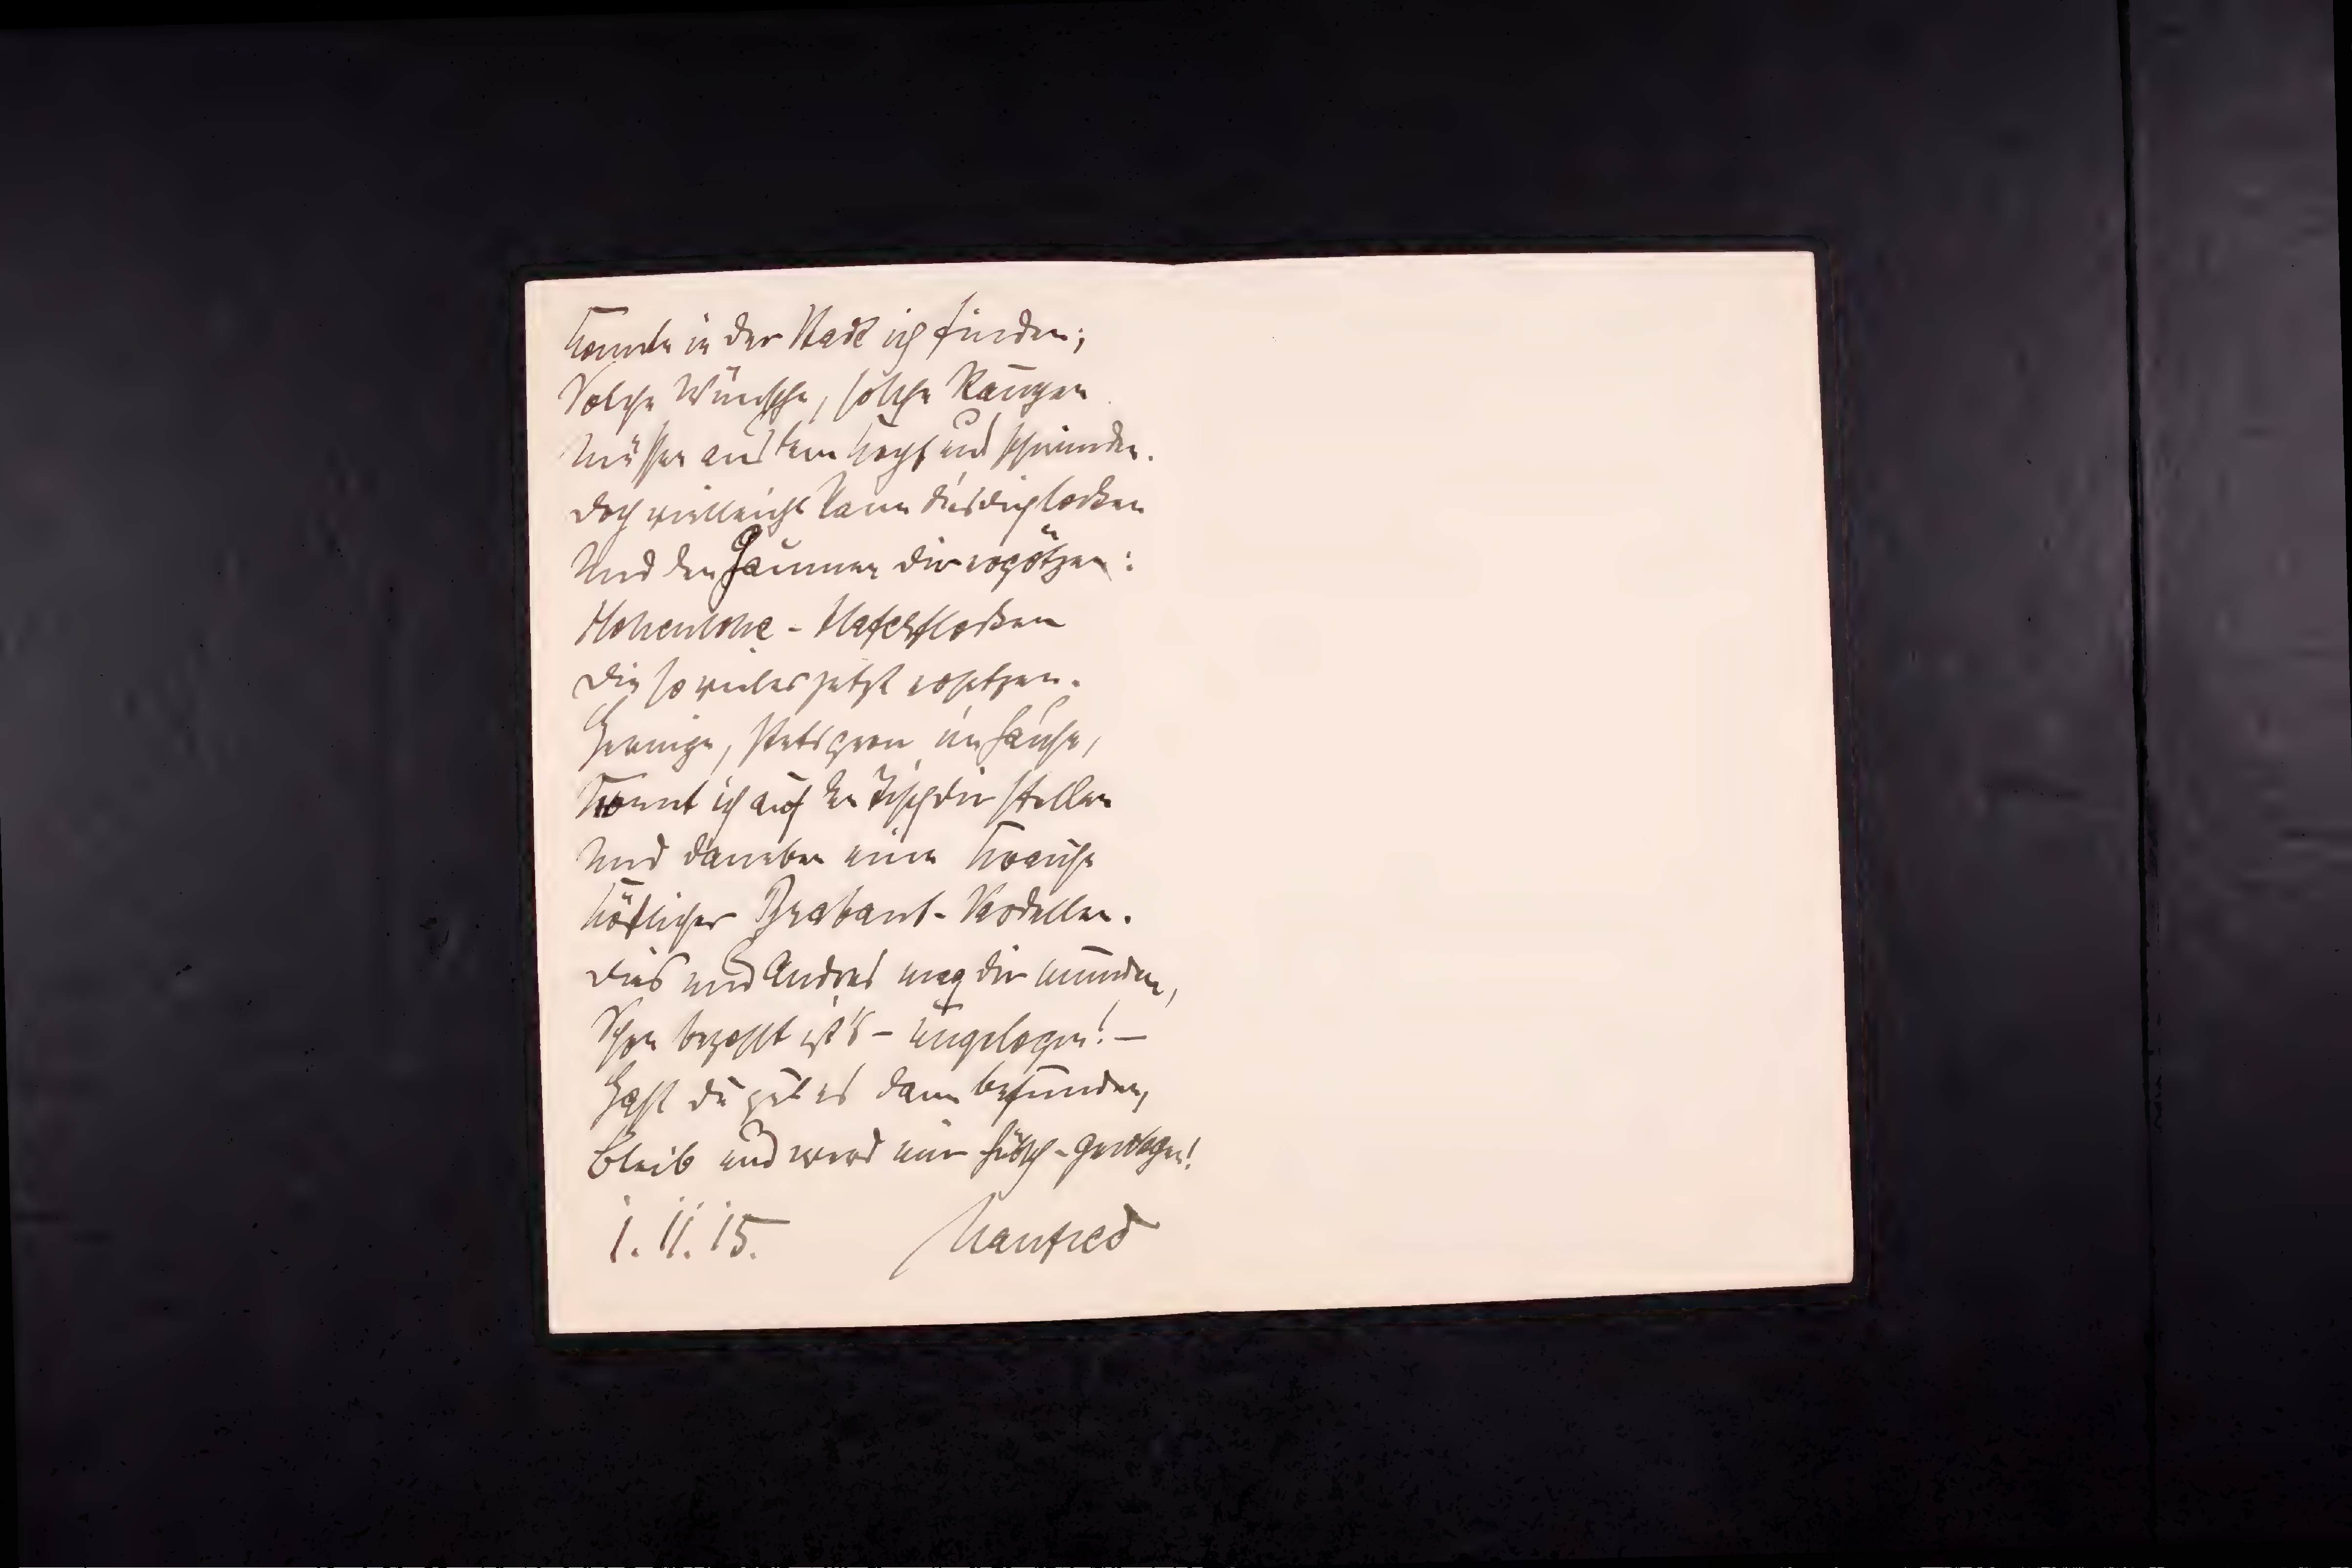 Konnte in der Stadt ich finden;
Solche Wünsche, solche Rangen
Müssen aus dem Kopf uns schwinden.
Doch vielleicht kann dies dich locken
Und den Gaumen dir ergötzen:
Hohenlohe-Haferflocken
Die so vieles jetzt ersetzen.
Heringe, stets gern im Hause,
Konnt ich auf den Tisch dir stellen
Und daneben eine Krause
Köstlicher Brabant-Sardellen.
Dies und Andres mag dir munden,
Schon bezahlt ist's – ungelogen! –
Hast du gut es dann befunden,
Bleib und werd mir hübsch-gewogen!
1. 11. 15. Manfred